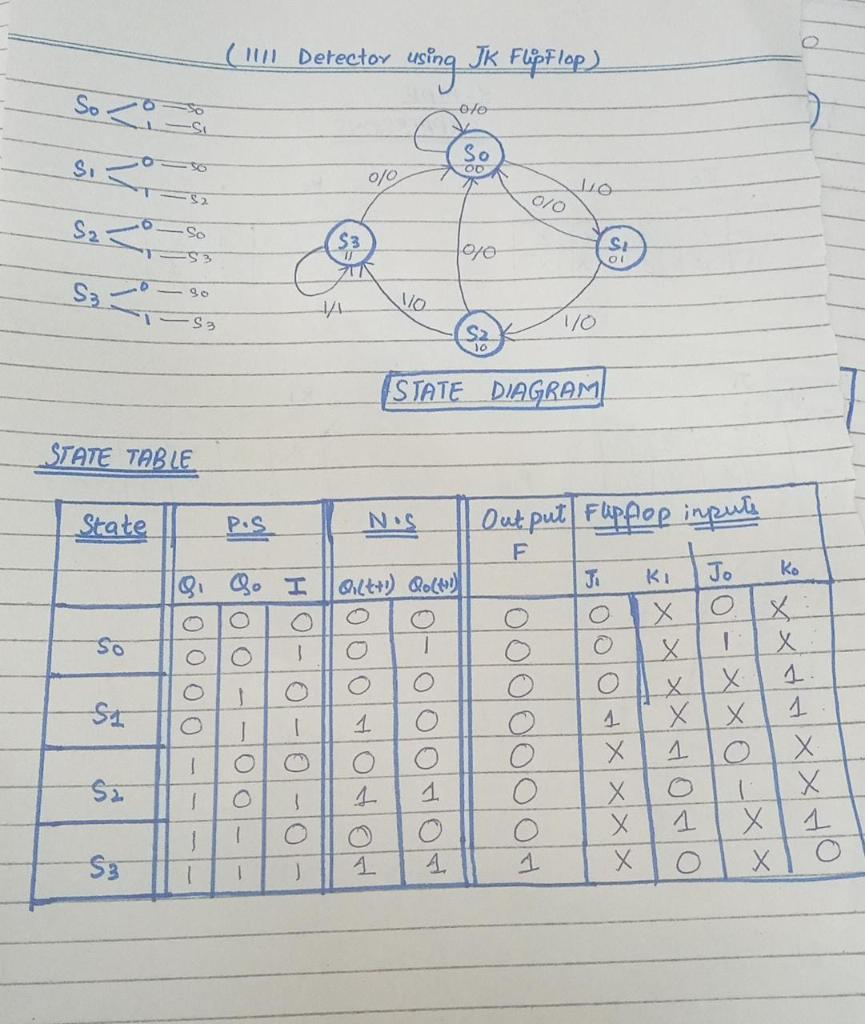 (1111 Detector using JK FlipFlop)
S0 < 0 — S0
1 — S1
S1 < 0 — S0
1 — S2
S2 < 0 — S0
1 — S3
S3 < 0 — S0
1 — S3
0/0
S0
00
0/0
1/0
0/0
S3
11
0/0
S1
01
1/1
1/0
S2
10
1/0
STATE DIAGRAM
STATE TABLE
State P.S N.S Output Flipflop inputs
F
Q1 Q0 I Q1(t+1) Q0(t+1) J1 K1 J0 K0
0 0 0 0 0 0 0 X 0 X
S0
0 0 1 0 1 0 0 X 1 X
0 1 0 0 0 0 0 X X 1
S1
0 1 1 1 0 0 1 X X 1
1 0 0 0 0 0 X 1 0 X
S2
1 0 1 1 1 0 X 0 1 X
1 1 0 0 0 0 X 1 X 1
S3
1 1 1 1 1 1 X 0 X 0